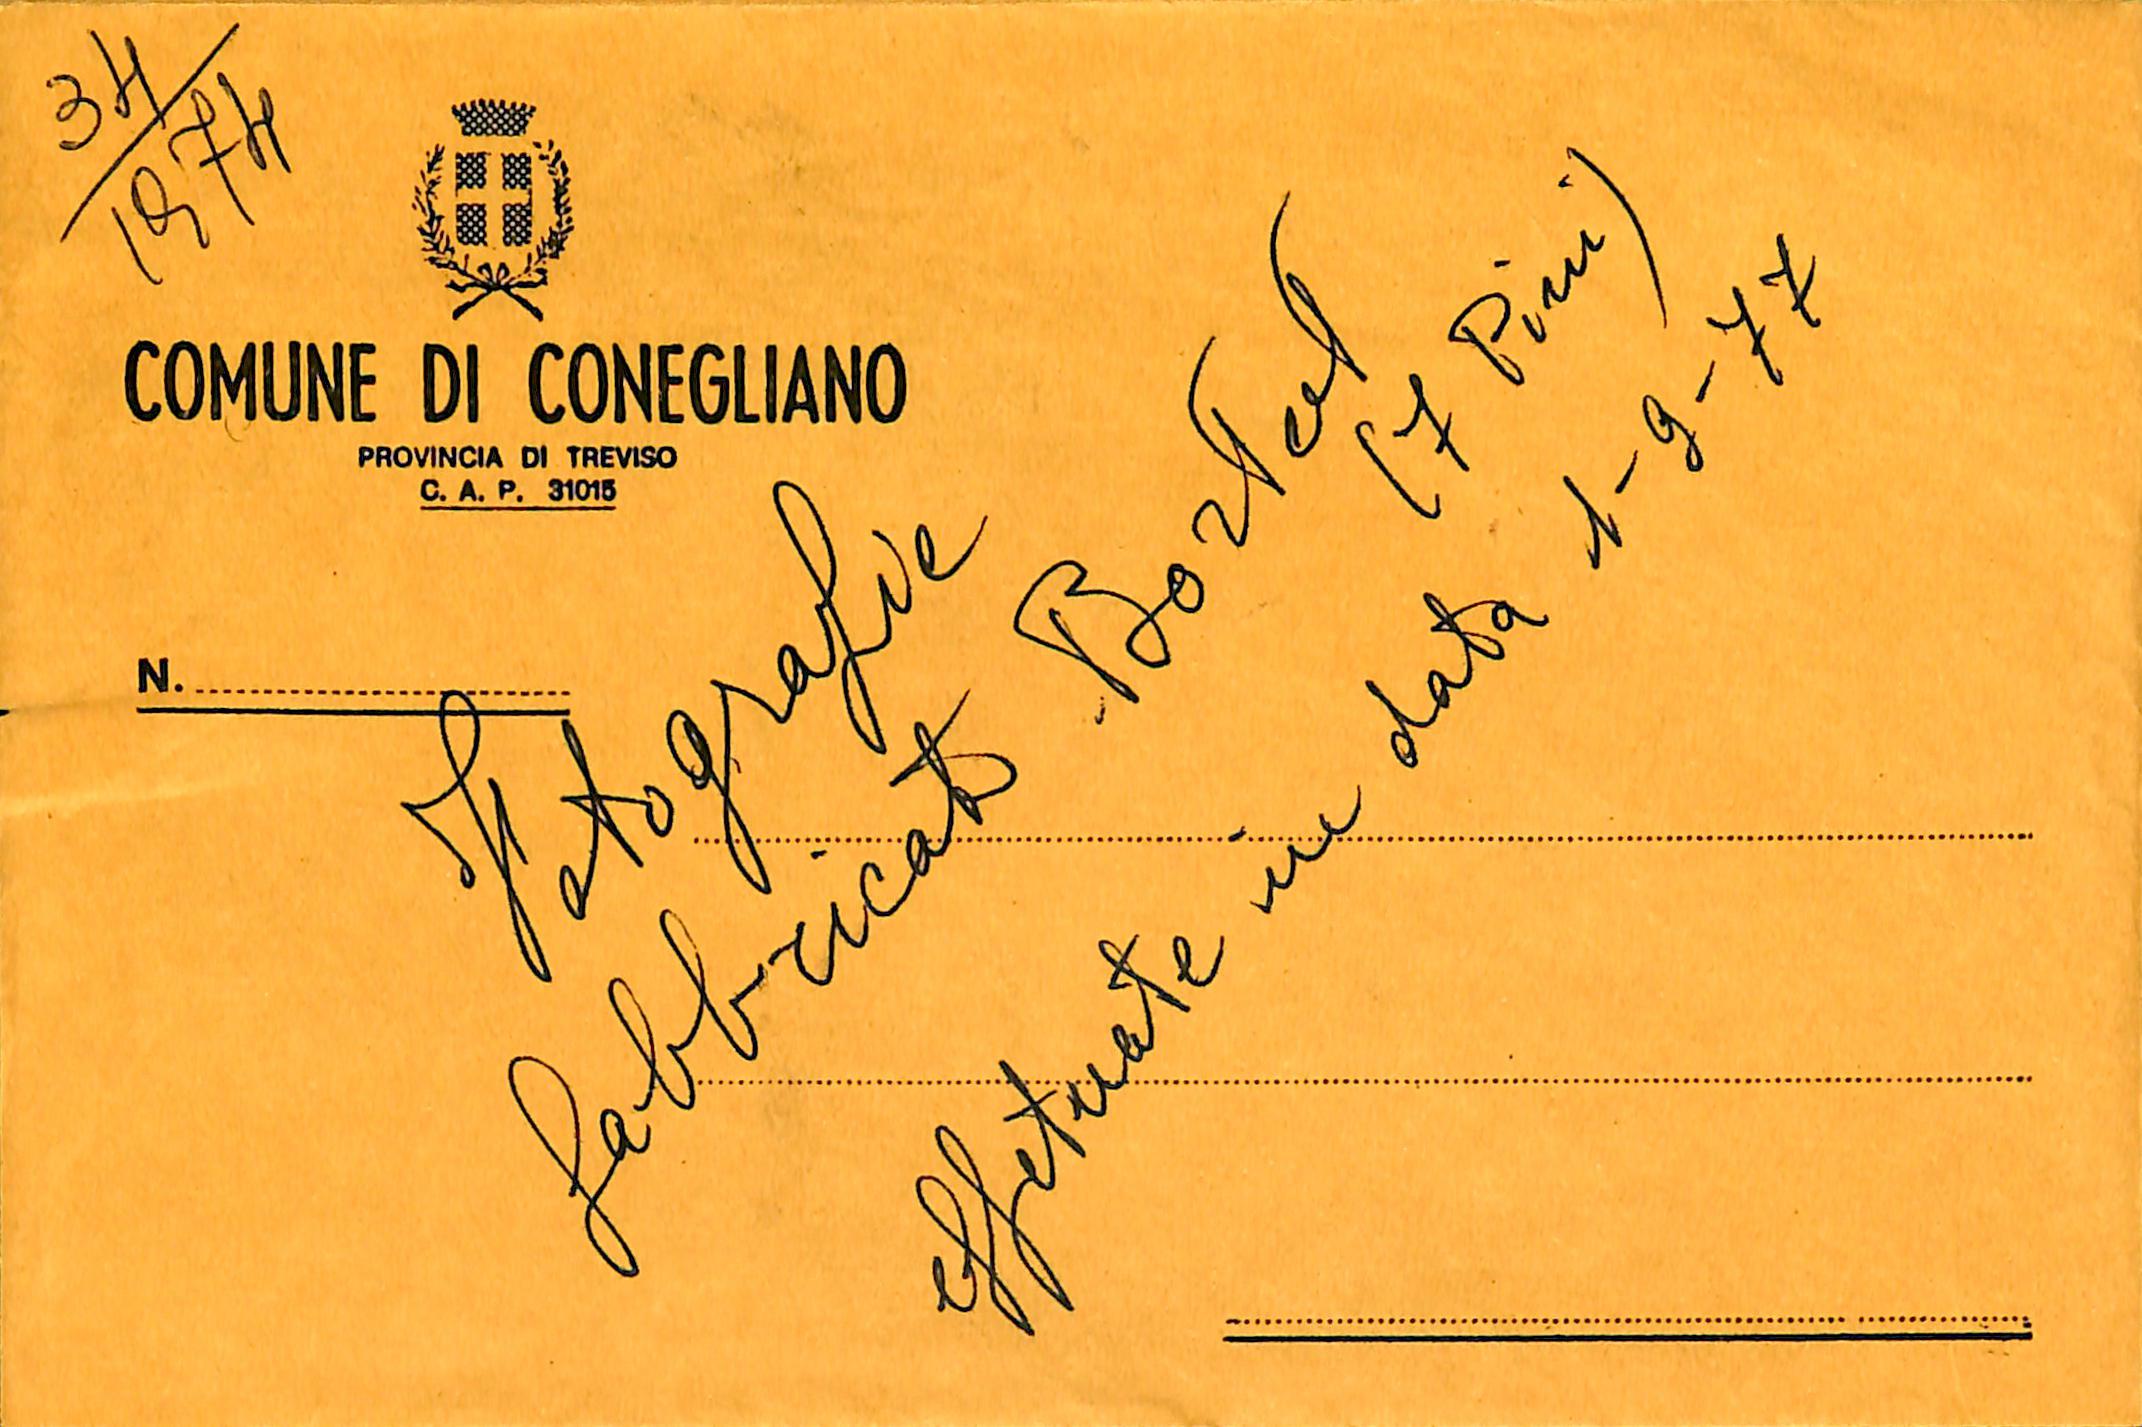 34/1974
COMUNE DI CONEGLIANO
PROVINCIA DI TREVISO
C. A. P. 31015
N.
Fotografie
fabbricato Bortul
(7 Pini)
effetuate in data 1-9-77